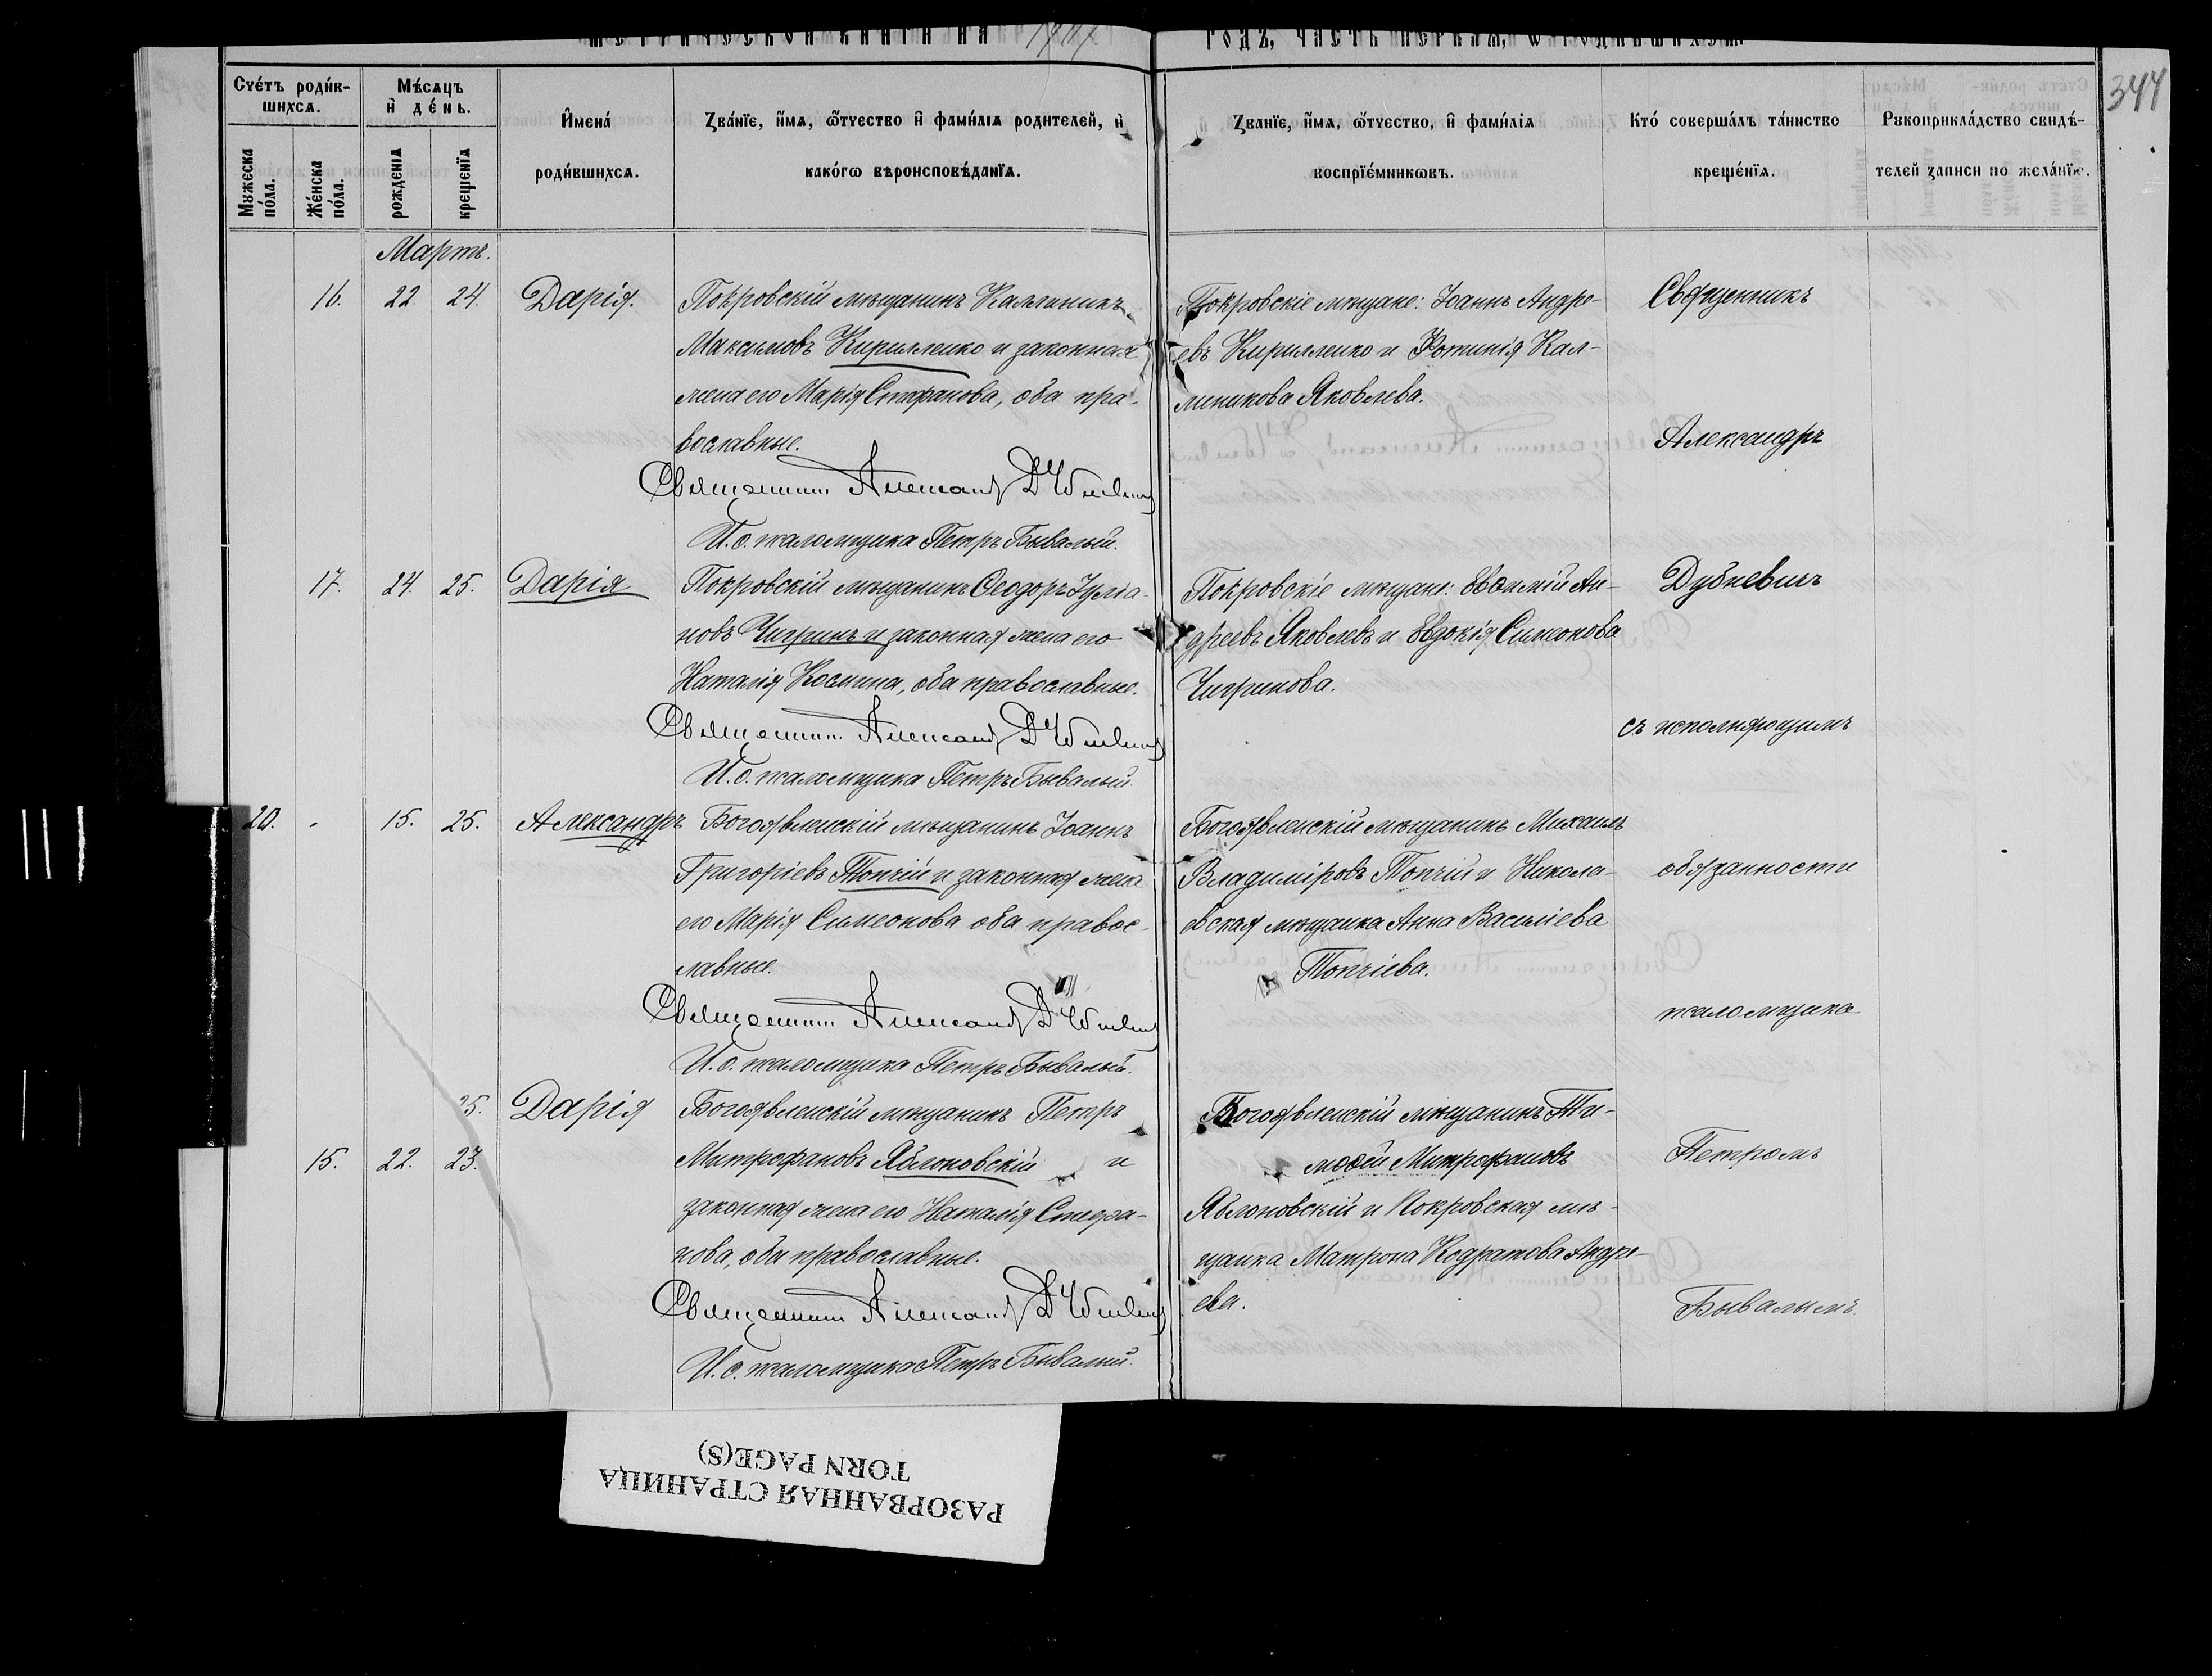 МЕТРИЧЕСКОЙ КНИГИ НА
ГОДЪ, ЧАСТЬ ПЕРВАЯ, Ѡ РОДИВШИХСЯ.
344
Счétъ родѝв-
шихсѧ.
Мѣ́сѧцъ
и҆ дéнь.
И҆менá
роди́вшихсѧ.
Ꙁвáнїе, и҆́мѧ, ѻ҆́тчество и҆ фами́лїѧ родителей, и҆
какóгѡ вѣроисповѣ́данїѧ.
Ꙁванїе, и҆́мѧ, ѻ҆́тчество, и҆ фами́лїѧ
воспрїéмникѡвъ.
Ктó совершáлъ тáинство
крещéнїѧ.
Рꙋкоприклáдство свидѣ́-
телей ꙁаписи по желáнїю.
Мꙋжеска
пóла.
Жéнска
пóла.
рожденїѧ
крещенїѧ
Мартъ.
16. 22. 24. Дарія.
Покровскій мѣщанинъ Каллиникъ
Максимовъ Кирилленко и законная
жена его Марія Стефанова, оба пра-
вославные.
Священникъ Александръ Дубневичъ
И. о. псаломщика Петръ Бывалый.
Покровскіе мѣщане: Іоаннъ Андре-
евъ Кирилленко и Фотинія Кал-
линикова Яковлева.
Священникъ
Александръ
17. 24. 25. Дарія
Покровскій мѣщанинъ Ѳеодоръ Іуліа-
новъ Чигринъ и законная жена его
Наталія Космина, оба православные.
Священникъ Александръ Дубневичъ
И. о. псаломщика Петръ Бывалый.
Покровскіе мѣщане: Евѳимій Ан-
дреевъ Яковлевъ и Евдокія Симеонова
Чигринова.
Дубневичъ
съ исполняющимъ
20. - 15. 25. Александръ
Богоявленскій мѣщанинъ Іоаннъ
Григоріевъ Топчій и законная жена
его Марія Симеонова оба правос-
лавные.
Священникъ Александръ Дубневичъ
И. о. псаломщика Петръ Бывалый.
Богоявленскій мѣщанинъ Михаилъ
Владиміровъ Топчій и Никола-
евская мѣщанка Анна Василіева
Топчіева.
обязанности
псаломщика
25. Дарія
15. 22. 23.
Богоявленскій мѣщанинъ Петръ
Митрофановъ Яблоновскій и
законная жена его Наталія Стефа-
нова, оба православные.
Священникъ Александръ Дубневичъ
И. о. псаломщика Петръ Бывалый.
Богоявленскій мѣщанинъ Ти-
моѳей Митрофановъ
Яблоновскій и Покровская мѣ-
щанка Матрона Кодратова Андре-
ева.
Петромъ
Бывалымъ.
РАЗОРВАННАЯ СТРАНИЦА
TORN PAGE(S)